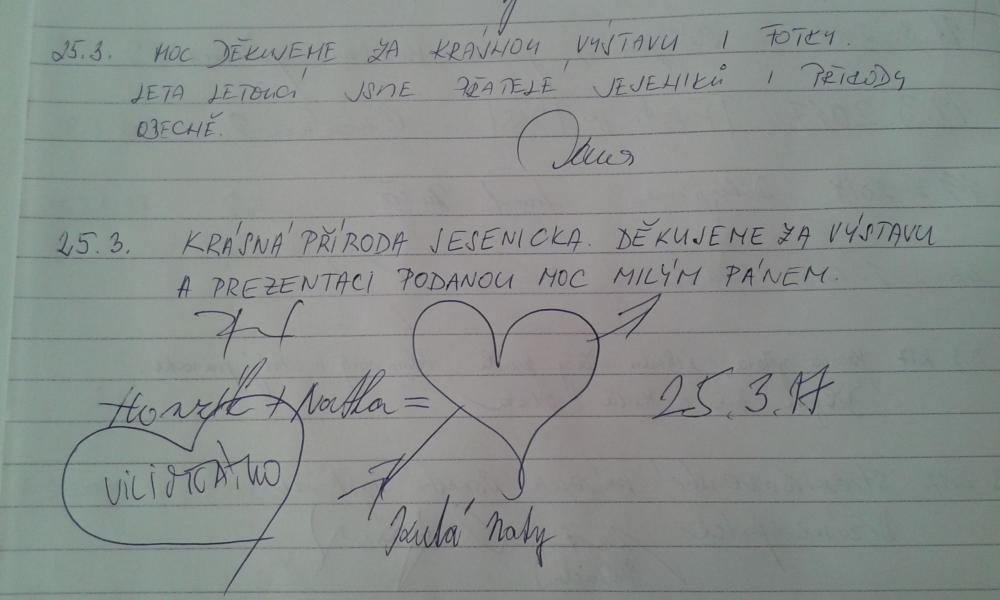 25.3. MOC DĚKUJEME ZA KRÁSNOU VÝSTAVU I FOTKY.
LÉTA LETOUCÍ JSME PŘÁTELÉ JESENÍKŮ I PŘÍRODY
OBECNĚ.
25.3. KRÁSNÁ PŘÍRODA JESENICKA. DĚKUJEME ZA VÝSTAVU
A PREZENTACI PODANOU MOC MILÝM PÁNEM.
Honzík + Natka = 25.3.17